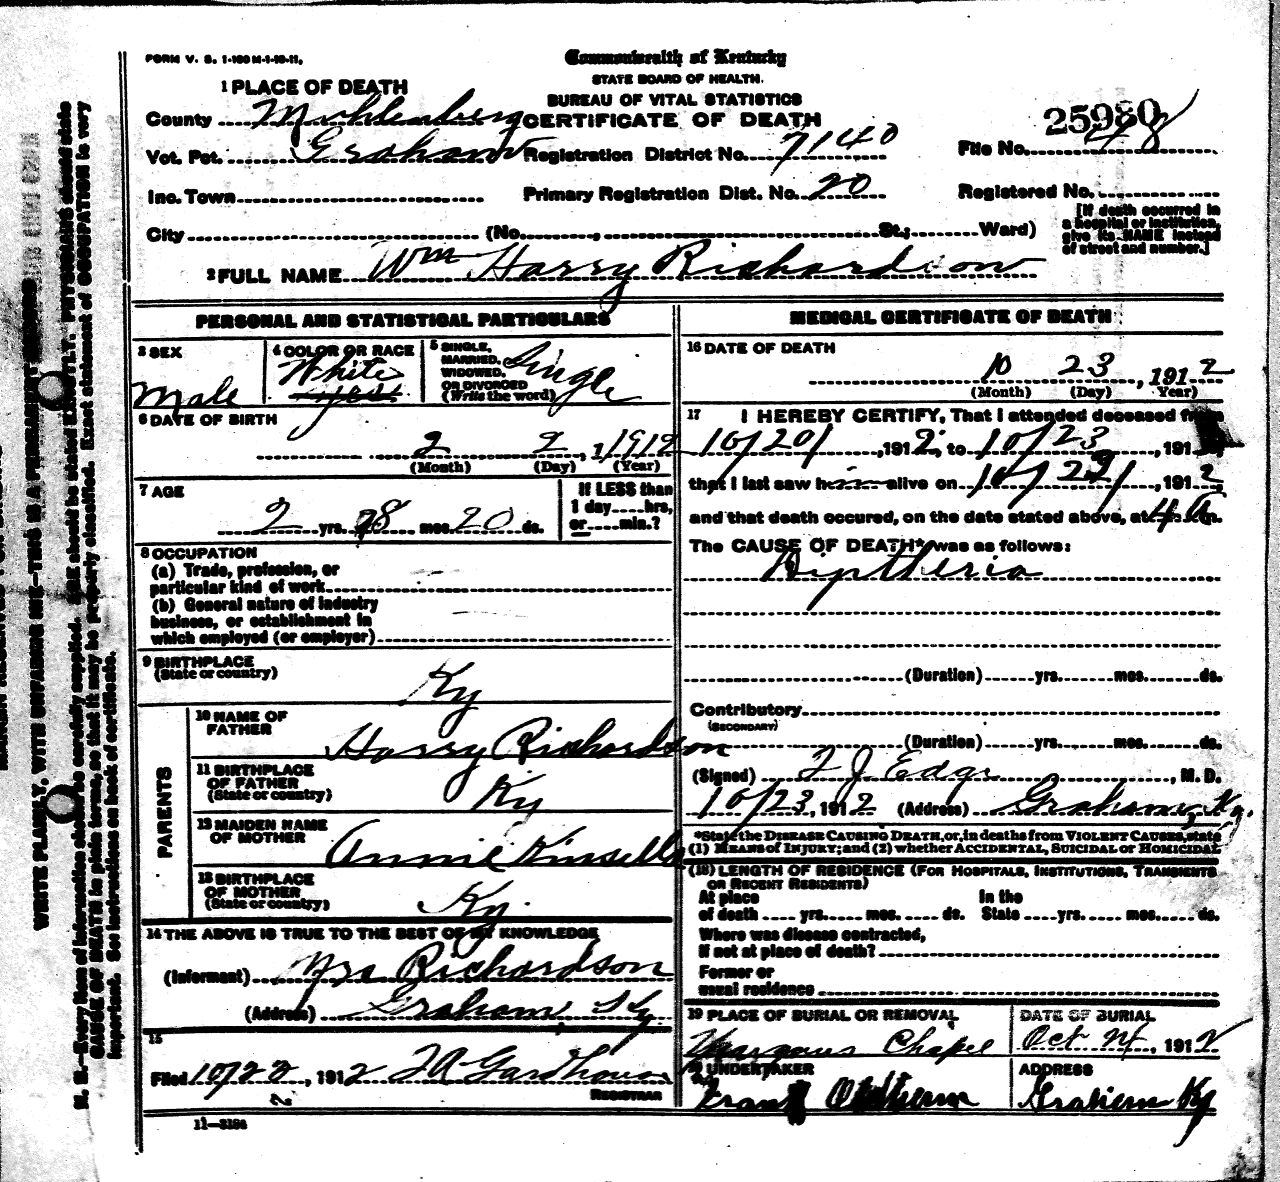 FORM V. S. 1-100 M-1-10-11.
Commonwealth of Kentucky
STATE BOARD OF HEALTH.
BUREAU OF VITAL STATISTICS
CERTIFICATE OF DEATH
1 PLACE OF DEATH
County Muhlenberg
Vot. Pct. Graham
Registration District No. 7140
25980
File No. 48
Inc. Town
Primary Registration Dist. No. 20
Registered No.
City (No. , St.; Ward)
[If death occurred in
a hospital or institution,
give its NAME instead
of street and number.]
2 FULL NAME Wm Harry Richardson
PERSONAL AND STATISTICAL PARTICULARS
3 SEX
Male
4 COLOR OR RACE
White
yes
5 SINGLE,
MARRIED,
WIDOWED,
OR DIVORCED
(Write the word)
Single
6 DATE OF BIRTH
2 2, 1 1912
(Month) (Day) (Year)
7 AGE
2 yrs. 8 mos. 20 ds.
If LESS than
1 day....hrs,
or.....min.?
8 OCCUPATION
(a) Trade, profession, or
particular kind of work
(b) General nature of industry
business, or establishment in
which employed (or employer)
9 BIRTHPLACE
(State or country)
Ky
PARENTS
10 NAME OF
FATHER
Harry Richardson
11 BIRTHPLACE
OF FATHER
(State or country)
Ky
12 MAIDEN NAME
OF MOTHER
Annie Kinsella
13 BIRTHPLACE
OF MOTHER
(State or country)
Ky.
14 THE ABOVE IS TRUE TO THE BEST OF MY KNOWLEDGE
(Informant) Mrs Richardson
(Address) Graham, Ky.
15
Filed 10/22, 1912
2
REGISTRAR
11—3186
MEDICAL CERTIFICATE OF DEATH
16 DATE OF DEATH
10 23, 1912
(Month) (Day) Year)
17 I HEREBY CERTIFY, That I attended deceased from
10/20/, 1912, to 10/23, 191
that I last saw him alive on 10/22/, 1912,
and that death occured, on the date stated above, at 4 a m.
The CAUSE OF DEATH* was as follows:
Diptheria
(Duration) yrs. mos. ds.
Contributory
(SECONDARY)
(Duration) yrs. mos. ds.
(Signed) T J. Edge, M. D.
10/23, 1912 (Address) Graham, Ky.
*State the DISEASE CAUSING DEATH, or, in deaths from VIOLENT CAUSES, state
(1) MEANS of INJURY; and (2) whether ACCIDENTAL, SUICIDAL or HOMICIDAL
(18) LENGTH OF RESIDENCE (FOR HOSPITALS, INSTITUTIONS, TRANSIENTS
OR RECENT RESIDENTS)
At place In the
of death yrs. mos. ds. State yrs. mos. ds.
Where was disease contracted,
if not at place of death?
Former or
usual residence
19 PLACE OF BURIAL OR REMOVAL
Chapel
DATE OF BURIAL
Oct 24, 1912
20 UNDERTAKER
Frank Oldham
ADDRESS
Graham Ky
WRITE PLAINLY, WITH UNFADING INK—THIS IS A PERMANENT RECORD
N. B.—Every item of information should be carefully supplied. AGE should be stated EXACTLY. PHYSICIANS should state
CAUSE OF DEATH in plain terms, so that it may be properly classified. Exact statement of OCCUPATION is very
important. See instructions on back of certificate.